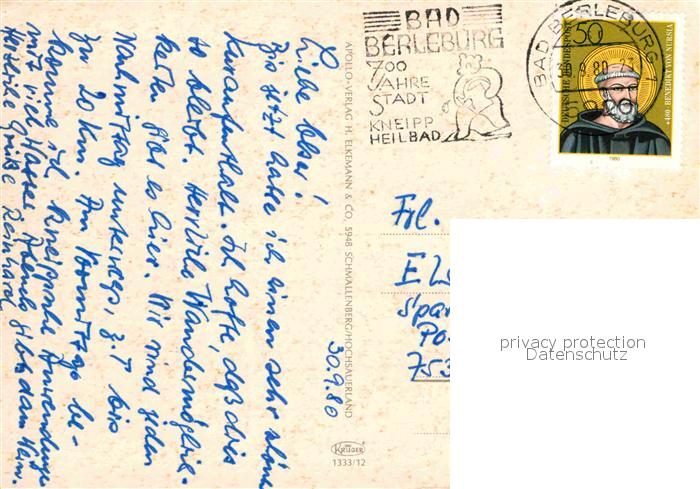 BAD
BERLEBURG
700
JAHRE
STADT
KNEIPP
HEILBAD
BAD BERLEBURG 1
9.80
DEUTSCHE BUNDESPOST
50
*480 BENEDIKT VON NURSIA
1980
30.9.80
Liebe
Bis jetzt hatte ich einen sehr schönen
Kuraufenthalt. Ich hoffe, daß dies
so bleibt. Herrliche Wandermöglich-
keiten gibt es hier. Wir sind jeden
Nachmittag unterwegs, z.T bis
zu 20 km. Am Vormittag be-
komme ich Kneippsche Anwendungen
mit viel Wasser. Abends gibts dann Wein.
Herzliche Grüße Reinhard
APOLLO-VERLAG H. ELKEMANN & CO. 5948 SCHMALLENBERG/HOCHSAUERLAND
KRÜGER
1333/12
Frl.
753
privacy protection
Datenschutz